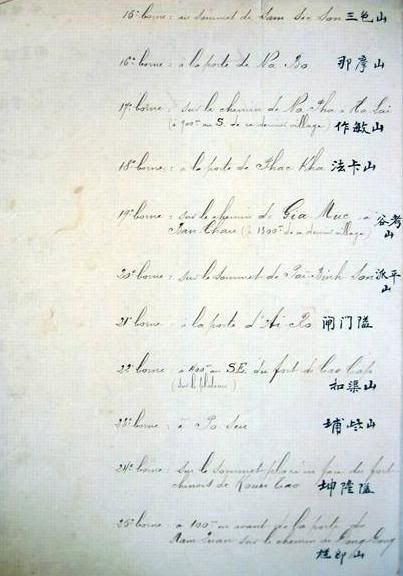 15e borne : au sommet de Sam Sec Son 三色山
16e borne : à la porte de Na Bo 那摩山
17e borne : sur le chemin de Na Pha à
(à 900m au S. de ce dernier village) 作敏山
18e borne : à la porte de Phac Kha 法卡山
19e borne : sur le chemin de Gia Muc à 谷考山
Ban Chau (à 1300m de ce dernier village)
20e borne : sur le sommet de Paï-Binh Son 派平山
21e borne : à la porte d'Aï Ro 闸门隘
22e borne : à 400m au S.E. du fort de Cao
(sur le plateau) 和渠山
23e borne : à Po 埔 山
24e borne : sur le sommet placé en face du fort
chinois de Kouei Cao 坤隆隘
25e borne : à 100m en avant de la porte de
Nam Quan sur le chemin de Dong Dang
山